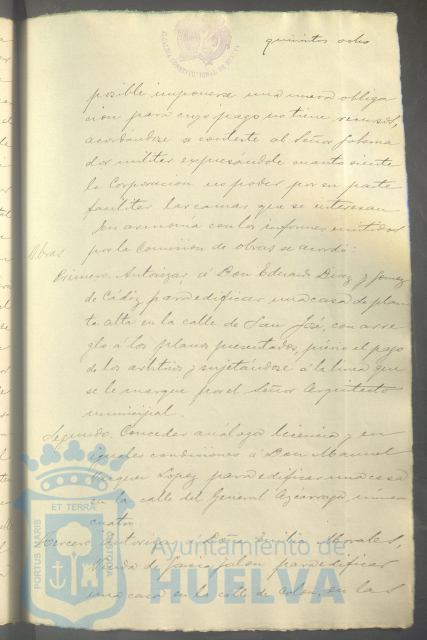 quinientos ocho
posible imponerse una nueva obliga
cion para cuyo pago no tiene recursos,
acordándose se conteste al Señor Goberna
dor militar expresándole cuanto siente
la Corporacion no poder por su parte
facilitar las camas que se interesan
En armonía con los informes emitidos
por la Comisión de obras se acordó:
Obras
Primero. Autorizar á Don Eduardo Diaz y Gomez
de Cádiz para edificar una casa de plan
ta alta en la calle de San José, con arre
glo á los planos presentados, previo el pago
de los arbitrios y sujetándose á la linea que
se le marque por el Señor Arquitecto
municipal.
Segundo. Conceder análoga licencia y en
iguales condiciones á Don Manuel
Lopez para edificar una casa
en la calle del General Azcárraga número
cuatro.
Tercero. Autorizar á Doña Emilia Morales,
Viuda de para edificar
una casa en la calle de Colon, en las
PORTUS MARIS ET TERRÆ CUSTODIA
Ayuntamiento de
HUELVA